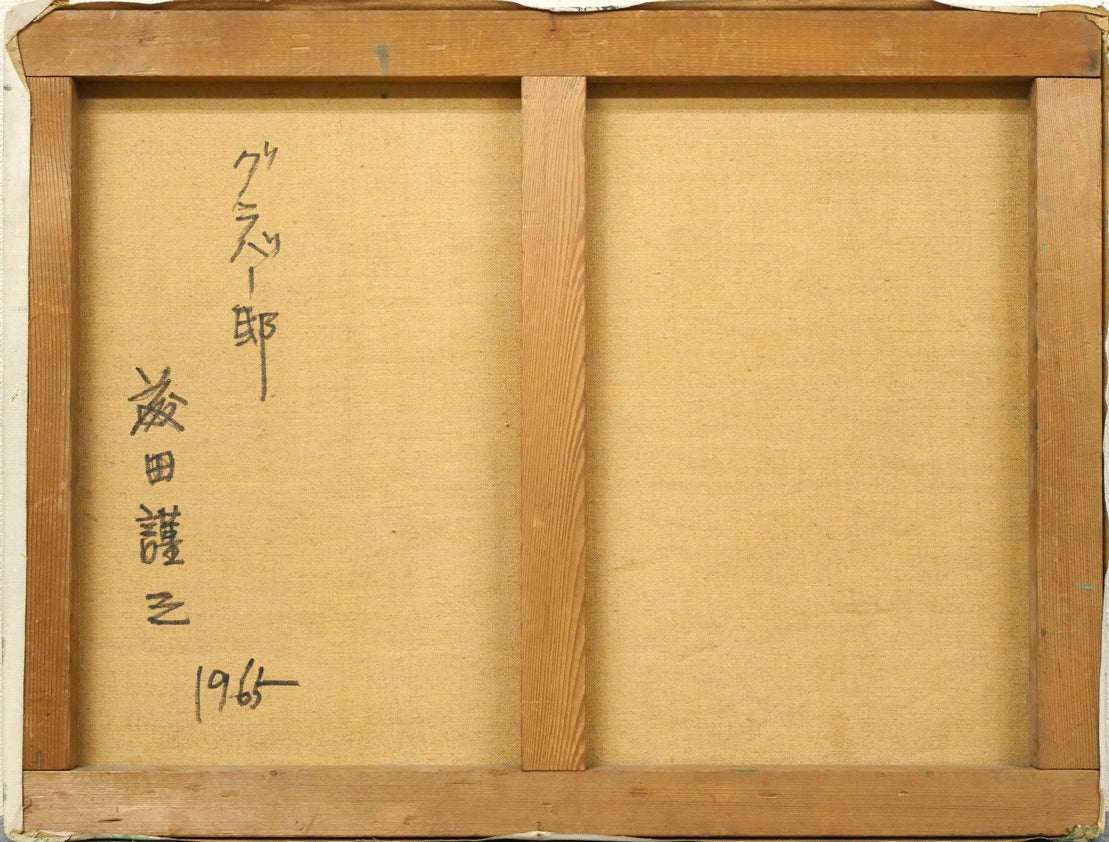 グラバー邸
田謹三
1965